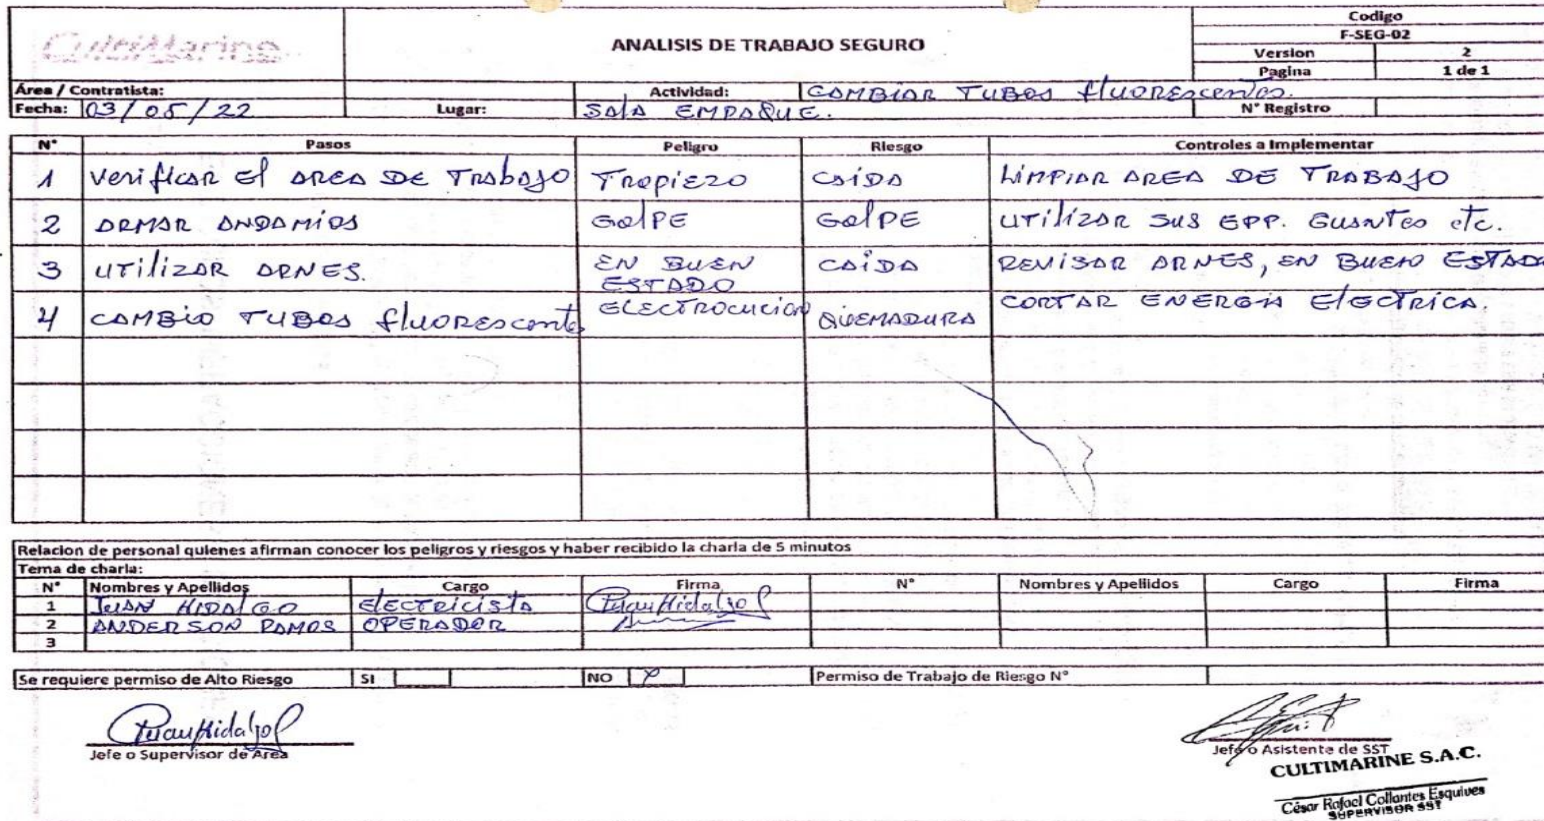 CultiMarine
ANALISIS DE TRABAJO SEGURO
Codigo
F-SEG-02
Version 2
Pagina 1 de 1
Área / Contratista: Actividad: CAMBIAR TUBOS fluorescentes.
Fecha: 03/05/22 Lugar: SALA EMPAQUE. N° Registro
N° Pasos Peligro Riesgo Controles a Implementar
1 Verificar El AREA DE TRABAJO Tropiezo CAÍDA LIMPIAR AREA DE TRABAJO
2 ARMAR ANDAMIOS GOlPE GOlPE UTilizAR SUS EPP. GUANTES etc.
3 UTilizAR ARNES. EN BUEN ESTADO CAÍDA REVISAR ARNES, EN BUEN ESTADO
4 CAMBIO TUBOS fluorescente ELECTROCUCION QUEMADURA CORTAR ENERGIA ElECTRICA.
Relacion de personal quienes afirman conocer los peligros y riesgos y haber recibido la charla de 5 minutos
Tema de charla:
N° Nombres y Apellidos Cargo Firma N° Nombres y Apellidos Cargo Firma
1 JUAN HIDALGO ElECTRICISTA Juan Hidalgo
2 ANDERSON RAMOS OPERADOR
3
Se requiere permiso de Alto Riesgo SI NO X Permiso de Trabajo de Riesgo N°
Juan Hidalgo
Jefe o Supervisor de Area
Jefe o Asistente de SST
CULTIMARINE S.A.C.
César Rafael Collantes Esquives
SUPERVISOR SST